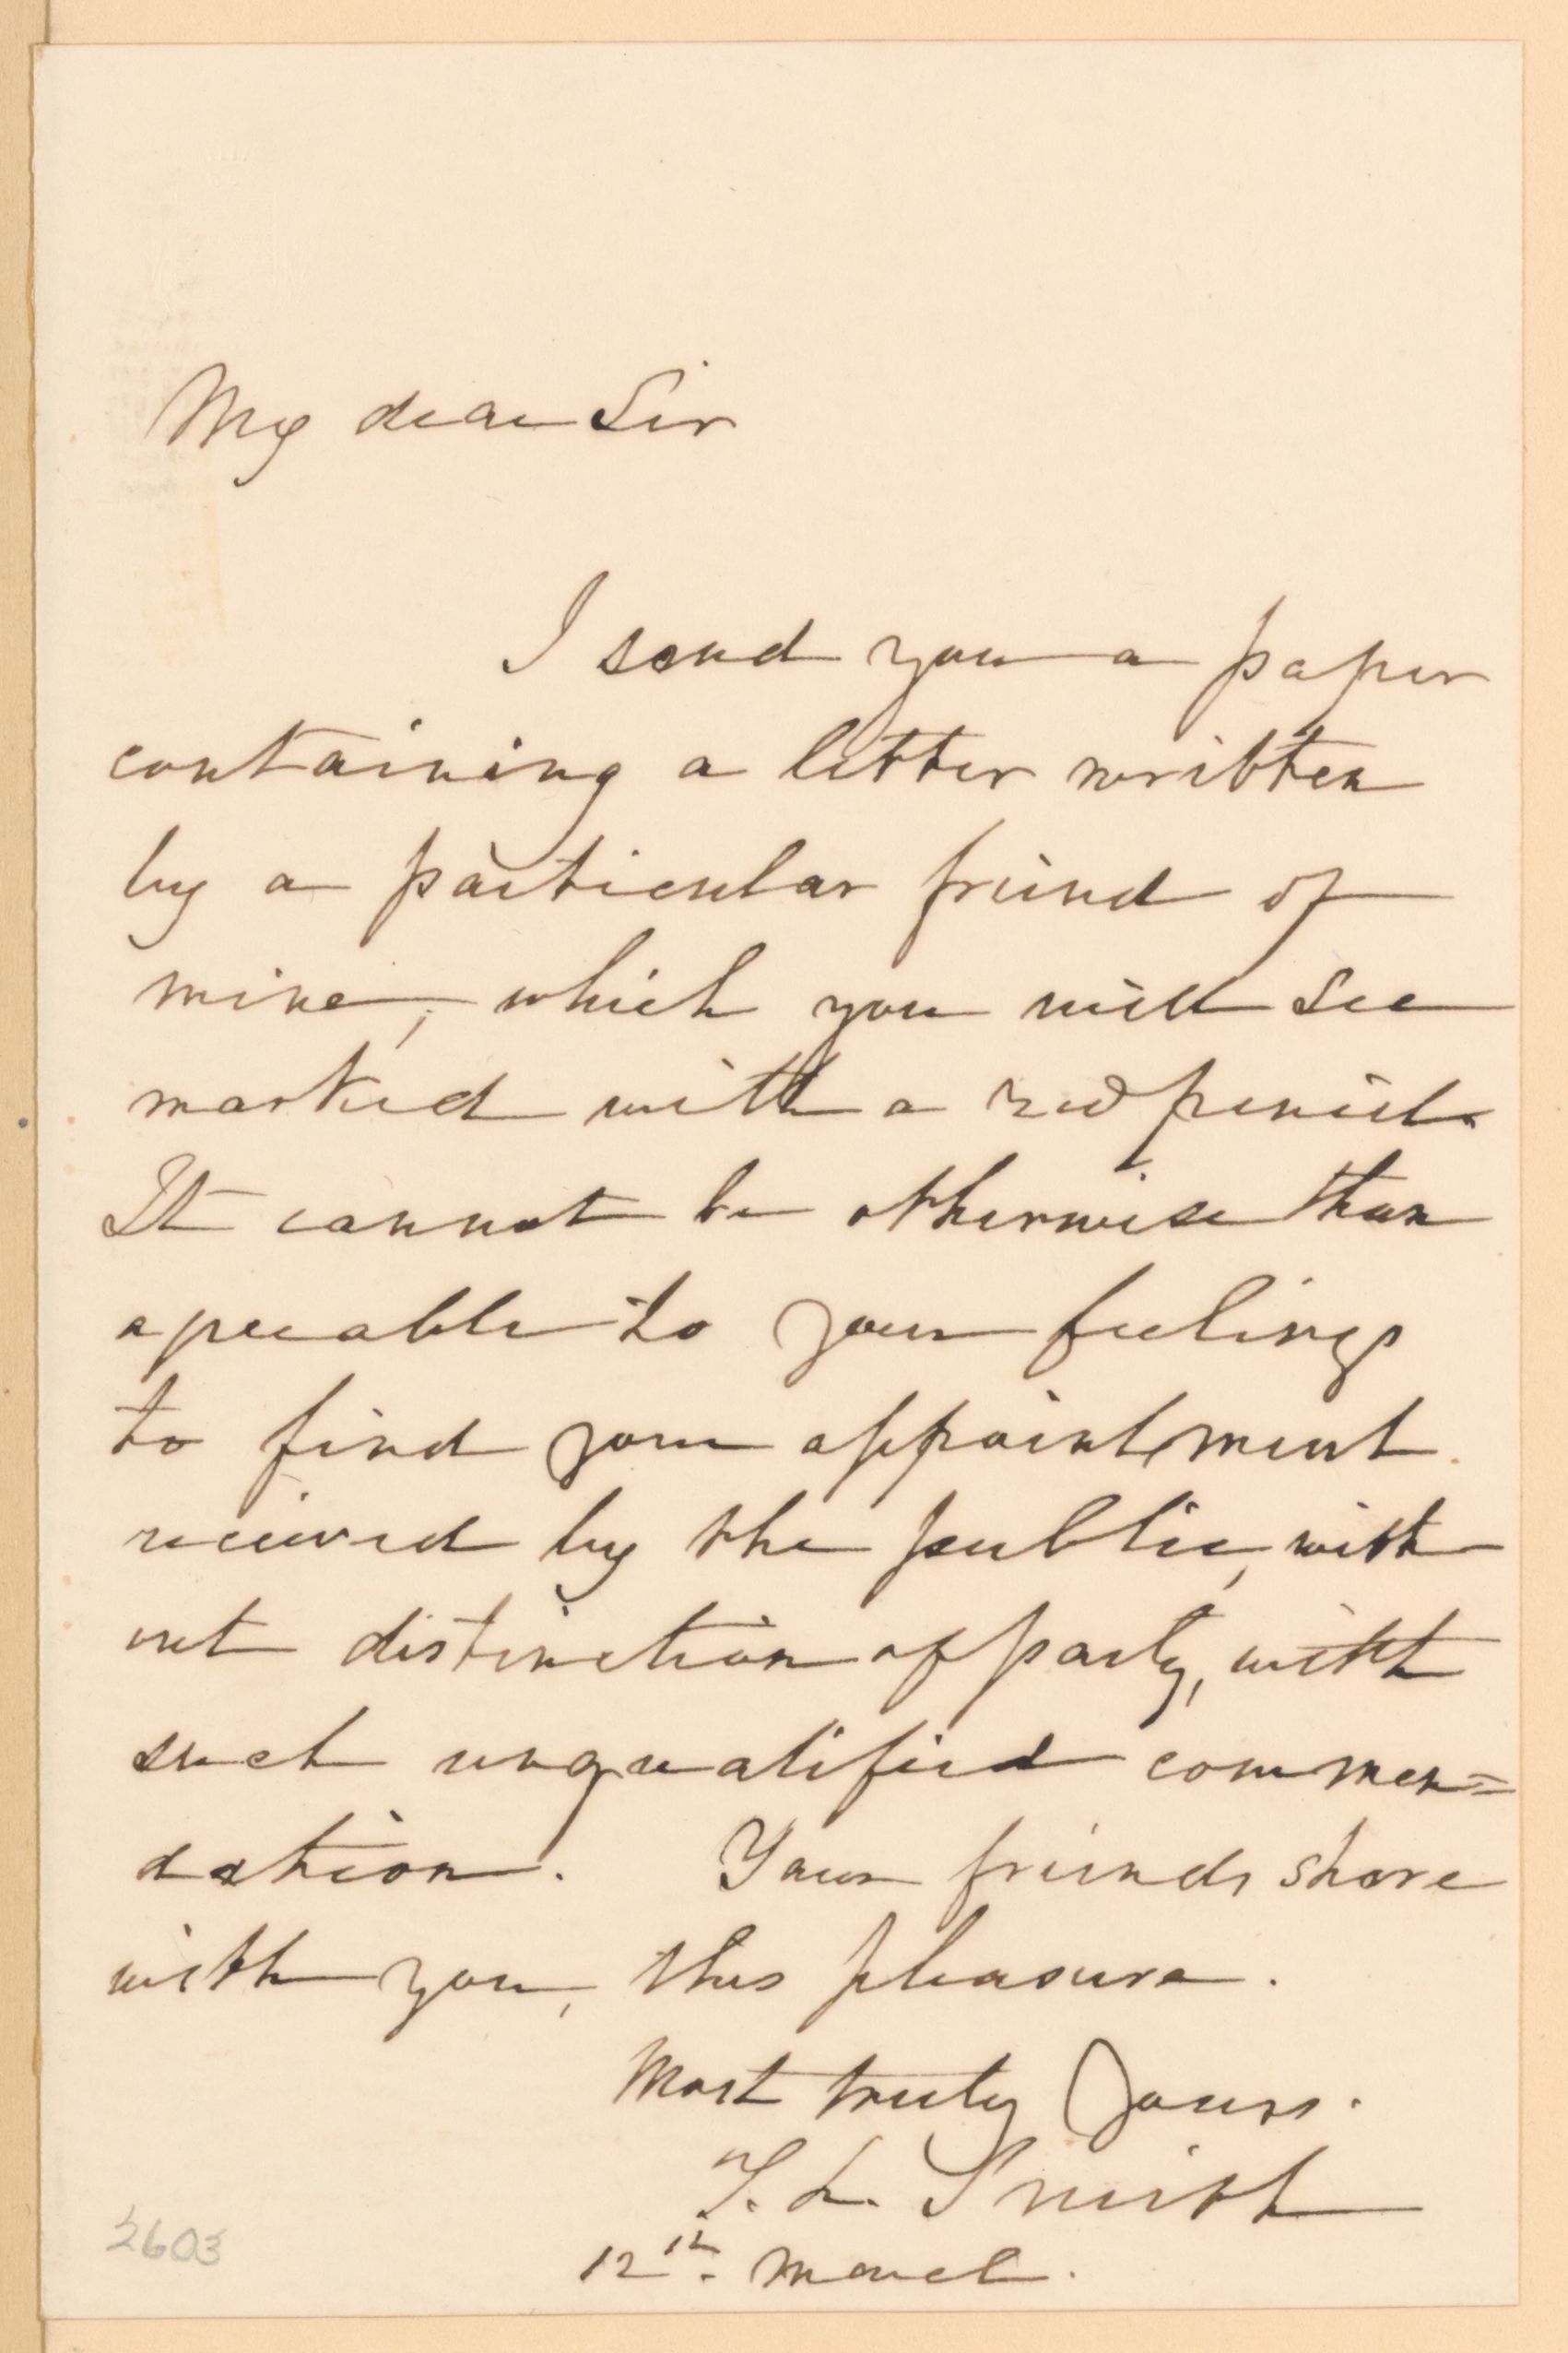 My dear Sir
I send you a paper
containing a letter written
by a particular friend of
mine, which you will see
marked with a red pencil.
It cannot be otherwise than
agreeable to your feelings
to find your appointment
received by the public, with
out distinction of party, with
such unqualified commen=
dation. Your friends share
with you, this pleasure.
Most truly yours.
T. L. Smith
12th. March.
2603